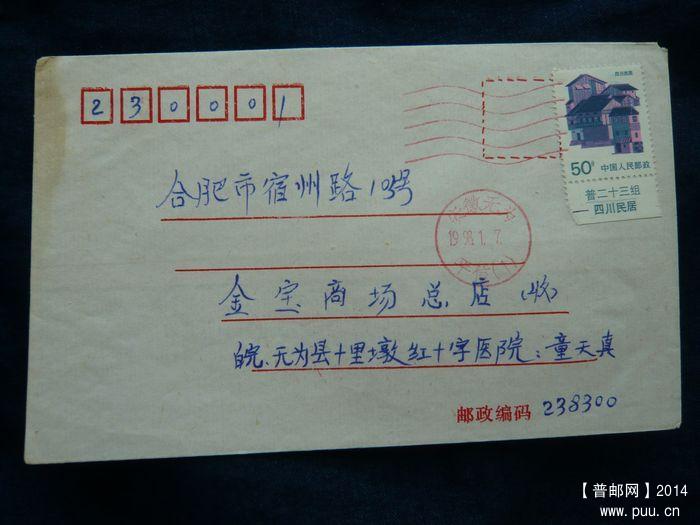 230001
四川民居
50分 中国人民邮政
普二十三组
一四川民居
合肥市宿州路103号
安徽无为
1998.1.7.
平信(1)
金宝商场总店(收)
皖、无为县十里墩红十字医院:童天真
邮政编码 238300
【普邮网】2014
www.puu.cn